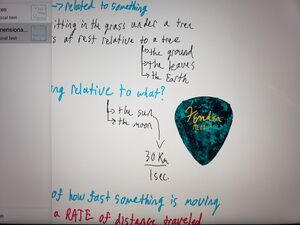 → related to something
itting in the grass under a tree
s at rest relative to a tree
→ the ground
→ the leaves
→ the Earth
ng relative to what?
→ the sun
→ the moon
30 Km
1 sec.
Fender
of how fast something is moving
a RATE of distance traveled